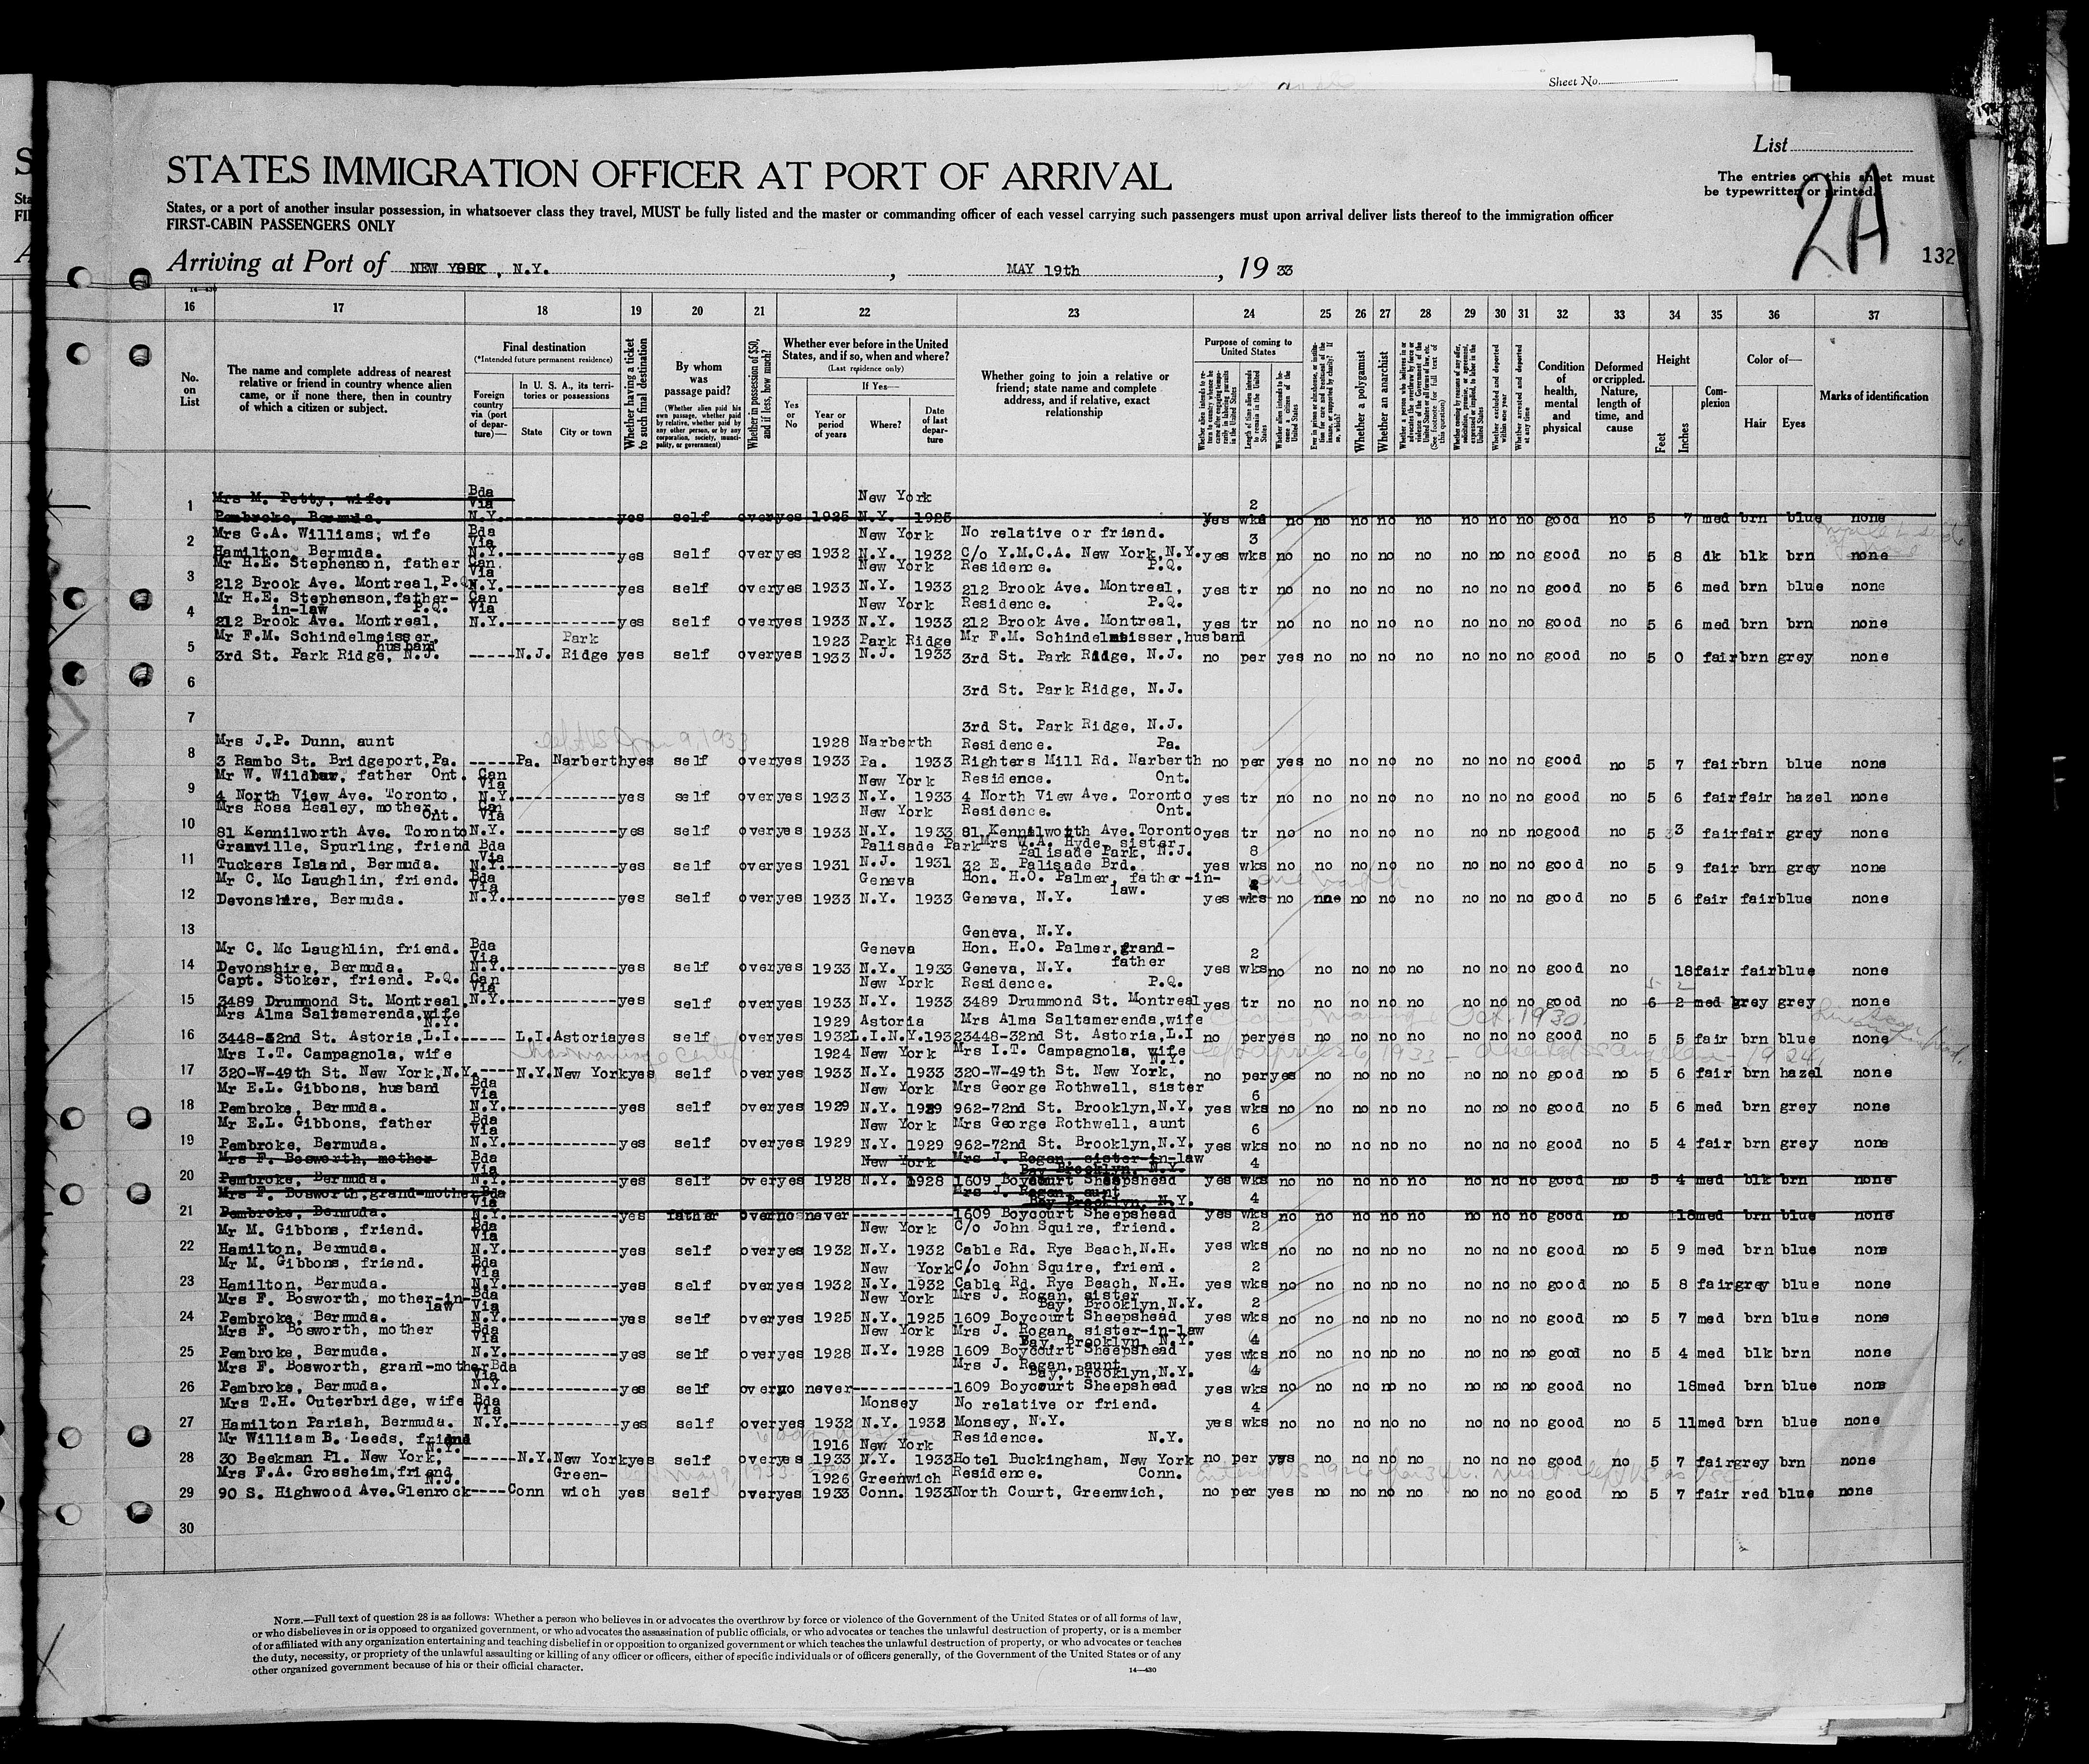 Sheet No.
List
STATES IMMIGRATION OFFICER AT PORT OF ARRIVAL
The entries on this sheet must
be typewritten or printed.
2A
States, or a port of another insular possession, in whatsoever class they travel, MUST be fully listed and the master or commanding officer of each vessel carrying such passengers must upon arrival deliver lists thereof to the immigration officer
FIRST-CABIN PASSENGERS ONLY
132
Arriving at Port of NEW YORK, N.Y. , MAY 19th , 19 33
14-430
16 17 18 19 20 21 22 23 24 25 26 27 28 29 30 31 32 33 34 35 36 37
No. on List
The name and complete address of nearest relative or friend in country whence alien came, or if none there, then in country of which a citizen or subject.
Final destination
(*Intended future permanent residence)
Foreign country via (port of departure)—
In U. S. A., its territories or possessions
State
City or town
Whether having a ticket to such final destination
By whom was passage paid?
(Whether alien paid his own passage, whether paid by relative, whether paid by any other person, or by any corporation, society, municipality, or government)
Whether in possession of $50, and if less, how much?
Whether ever before in the United States, and if so, when and where?
(Last residence only)
Yes or No
If Yes—
Year or period of years
Where?
Date of last departure
Whether going to join a relative or friend; state name and complete address, and if relative, exact relationship
Purpose of coming to United States
Length of time alien intends to remain in the United States
Whether alien intends to become a citizen of the United States
Whether a polygamist
Whether an anarchist
(See footnote for full text of this question)
Whether excluded and deported within one year
Whether arrested and deported at any time
Condition of health, mental and physical
Deformed or crippled. Nature, length of time, and cause
Height
Feet
Inches
Complexion
Color of—
Hair
Eyes
Marks of identification
Mrs M. Petty, wife. Bda Via New York 2
1 Pembroke, Bermuda. N.Y. yes self over yes 1925 N.Y. 1925 yes wks no no no no no no no no good no 5 7 med brn blue none
Mrs G.A. Williams, wife Bda Via New York No relative or friend. 3
2 Hamilton, Bermuda. N.Y. yes self over yes 1932 N.Y. 1932 C/o Y.M.C.A. New York, N.Y. yes wks no no no no no no no no good no 5 8 dk blk brn none
Mr H.E. Stephenson, father Can. Via New York Residence. P.Q.
3 212 Brook Ave. Montreal, P.Q. N.Y. yes self over yes 1933 N.Y. 1933 212 Brook Ave. Montreal, yes tr no no no no no no no no good no 5 6 med brn blue none
Mr H.E. Stephenson, father-in-law P.Q. Can Via New York Residence. P.Q.
4 212 Brook Ave. Montreal, N.Y. yes self over yes 1933 N.Y. 1933 212 Brook Ave. Montreal, yes tr no no no no no no no no good no 5 6 med brn brn none
Mr F.M. Schindelmeisser, husband Park 1923 Park Ridge Mr F.M. Schindelmeisser, husband
5 3rd St. Park Ridge, N.J. -----N.J. Ridge yes self over yes 1933 N.J. 1933 3rd St. Park Ridge, N.J. no per yes no no no no no no no good no 5 0 fair brn grey none
6 3rd St. Park Ridge, N.J.
7 3rd St. Park Ridge, N.J.
Mrs J.P. Dunn, aunt 1928 Narberth Residence. Pa.
8 3 Rambo St. Bridgeport, Pa. -----Pa. Narberth yes self over yes 1933 Pa. 1933 Righters Mill Rd. Narberth no per yes no no no no no no no good no 5 7 fair brn blue none
Mr W. Wildbur, father Ont. Can Via New York Residence. Ont.
9 4 North View Ave. Toronto, N.Y. yes self over yes 1933 N.Y. 1933 4 North View Ave. Toronto yes tr no no no no no no no no good no 5 6 fair fair hazel none
Mrs Rosa Healey, mother Ont. Can Via New York Residence. Ont.
10 81 Kennilworth Ave. Toronto N.Y. yes self over yes 1933 N.Y. 1933 81 Kennilworth Ave. Toronto yes tr no no no no no no no no good no 5 3 fair fair grey none
Granville, Spurling, friend Bda Via Palisade Park Mrs W.A. Hyde, sister Palisade Park, N.J. 8
11 Tuckers Island, Bermuda. N.Y. yes self over yes 1931 N.J. 1931 32 E. Palisade Brd. yes wks no no no no no no no no good no 5 9 fair brn grey none
Mr C. Mc Laughlin, friend. Bda Via Geneva Hon. H.O. Palmer, father-in-law.
12 Devonshire, Bermuda. N.Y. yes self over yes 1933 N.Y. 1933 Geneva, N.Y. yes wks no no no no no no no no good no 5 6 fair fair blue none
13 Geneva, N.Y.
Mr C. Mc Laughlin, friend. Bda Via Geneva Hon. H.O. Palmer, grand-father 2
14 Devonshire, Bermuda. N.Y. yes self over yes 1933 N.Y. 1933 Geneva, N.Y. yes wks no no no no no no no no good no 18 fair fair blue none
Capt. Stoker, friend. P.Q. Can Via New York Residence. P.Q. 5 2
15 3489 Drummond St. Montreal, N.Y. yes self over yes 1933 N.Y. 1933 3489 Drummond St. Montreal yes tr no no no no no no no no good no 6 2 med grey grey none
Mrs Alma Saltamerenda, wife N.Y. 1929 Astoria Mrs Alma Saltamerenda, wife Oct. 1930
16 3448-32nd St. Astoria, L.I. ----- L.I. Astoria yes self over yes 1932 L.I.N.Y. 1932 3448-32nd St. Astoria, L.I no per yes no no no no no no no good no 5 5 fair brn blue none
Mrs I.T. Campagnola, wife 1924 New York Mrs I.T. Campagnola, wife N.Y. left April 26, 1933
17 320-W-49th St. New York, N.Y. ---N.Y. New York yes self over yes 1933 N.Y. 1933 320-W-49th St. New York, no per yes no no no no no no no good no 5 6 fair brn hazel none
Mr E.L. Gibbons, husband Bda Via New York Mrs George Rothwell, sister 6
18 Pembroke, Bermuda. N.Y. yes self over yes 1929 N.Y. 1929 962-72nd St. Brooklyn, N.Y. yes wks no no no no no no no no good no 5 6 med brn grey none
Mr E.L. Gibbons, father Bda Via New York Mrs George Rothwell, aunt 6
19 Pembroke, Bermuda. N.Y. yes self over yes 1929 N.Y. 1929 962-72nd St. Brooklyn, N.Y. yes wks no no no no no no no no good no 5 4 fair brn grey none
Mrs F. Bosworth, mother Bda Via New York Mrs J. Rogan, sister-in-law Bay Brooklyn, N.Y. 4
20 Pembroke, Bermuda. N.Y. yes self over yes 1928 N.Y. 1928 1609 Boycourt Sheepshead yes wks no no no no no no no no good no 5 4 med blk brn none
Mrs F. Bosworth, grand-mother Bda Via Mrs J. Rogan, aunt Bay Brooklyn, N.Y. 4
21 Pembroke, Bermuda. N.Y. yes father over no never 1609 Boycourt Sheepshead yes wks no no no no no no no no good no 18 med brn blue none
Mr M. Gibbons, friend. Bda Via New York C/o John Squire, friend. 2
22 Hamilton, Bermuda. N.Y. yes self over yes 1932 N.Y. 1932 Cable Rd. Rye Beach, N.H. yes wks no no no no no no no no good no 5 9 med brn blue none
Mr M. Gibbons, friend. Bda Via New York C/o John Squire, friend. 2
23 Hamilton, Bermuda. N.Y. yes self over yes 1932 N.Y. 1932 Cable Rd. Rye Beach, N.H. yes wks no no no no no no no no good no 5 8 fair grey blue none
Mrs F. Bosworth, mother-in-law Bda Via New York Mrs J. Rogan, sister Bay, Brooklyn, N.Y. 2
24 Pembroke, Bermuda. N.Y. yes self over yes 1925 N.Y. 1925 1609 Boycourt Sheepshead yes wks no no no no no no no no good no 5 7 med brn blue none
Mrs F. Bosworth, mother Bda Via New York Mrs J. Rogan, sister-in-law Bay, Brooklyn, N.Y. 4
25 Pembroke, Bermuda. N.Y. yes self over yes 1928 N.Y. 1928 1609 Boycourt Sheepshead yes wks no no no no no no no no good no 5 4 med blk brn none
Mrs F. Bosworth, grand-mother Bda Via Mrs J. Rogan, aunt Bay, Brooklyn, N.Y. 4
26 Pembroke, Bermuda. N.Y. yes self over no never 1609 Boycourt Sheepshead yes wks no no no no no no no no good no 18 med brn blue none
Mrs T.H. Outerbridge, wife Bda Via Monsey No relative or friend. 4
27 Hamilton Parish, Bermuda. N.Y. yes self over yes 1932 N.Y. 1932 Monsey, N.Y. yes wks no no no no no no no no good no 5 11 med brn blue none
Mr William B. Leeds, friend N.Y. 1916 New York Residence. N.Y.
28 30 Beekman Pl. New York, ------N.Y. New York yes self over yes 1933 N.Y. 1933 Hotel Buckingham, New York no per yes no no no no no no no good no 5 7 fair grey brn none
Mrs F.A. Grossheim, friend N.J. Green- 1926 Greenwich Residence. Conn.
29 90 S. Highwood Ave. Glenrock ----Conn wich yes self over yes 1933 Conn. 1933 North Court, Greenwich, no per yes no no no no no no no good no 5 7 fair red blue none
30
NOTE.—Full text of question 28 is as follows: Whether a person who believes in or advocates the overthrow by force or violence of the Government of the United States or of all forms of law,
or who disbelieves in or is opposed to organized government, or who advocates the assassination of public officials, or who advocates or teaches the unlawful destruction of property, or is a member
of or affiliated with any organization entertaining and teaching disbelief in or opposition to organized government or which teaches the unlawful destruction of property, or who advocates or teaches
the duty, necessity, or propriety of the unlawful assaulting or killing of any officer or officers, either of specific individuals or of officers generally, of the Government of the United States or of any
other organized government because of his or their official character.
14—430